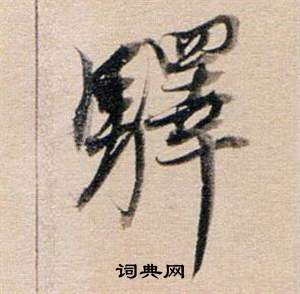 驛
词典网